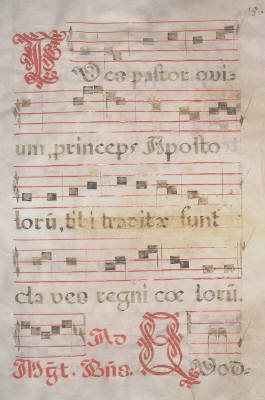 TV es pastor ovi-
um, princeps Aposto
lorũ, tibi traditæ sunt
cla ves regni cœ lorũ.
Ad
Mg̃t. Bñs. Quod-